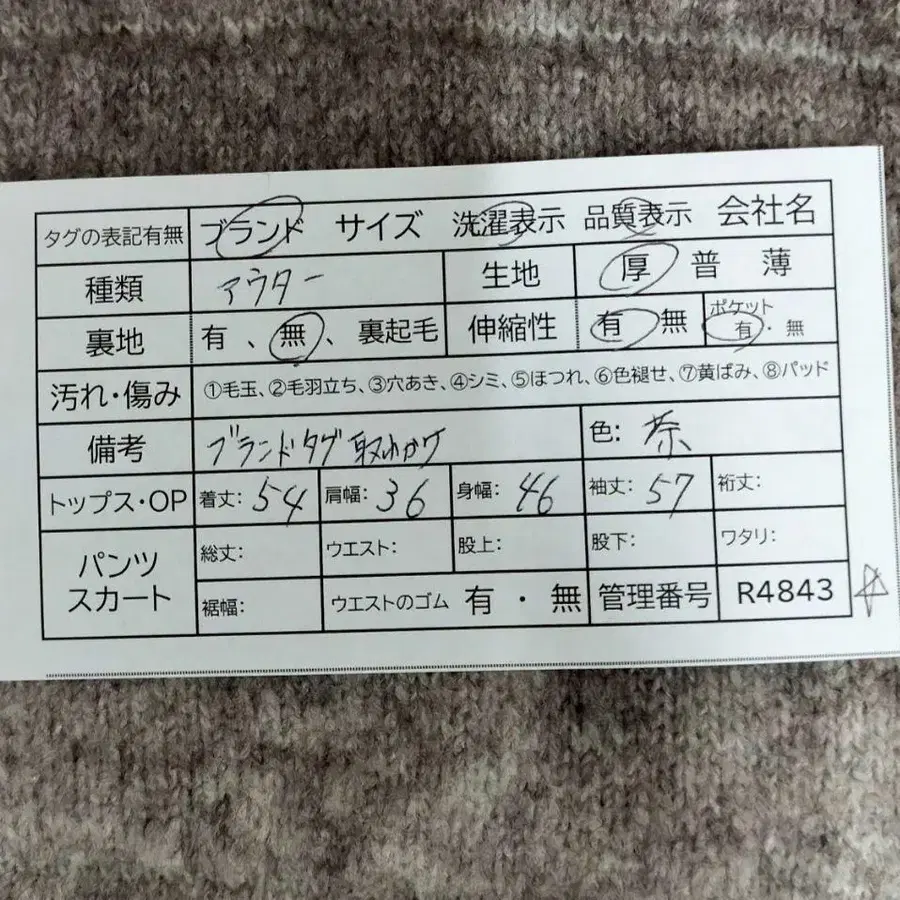 タグの表記有無 ブランド サイズ 洗濯表示 品質表示 会社名
種類 アウター 生地 厚 普 薄
裏地 有 、無、裏起毛 伸縮性 有 無 ポケット 有・無
汚れ・傷み ①毛玉、②毛羽立ち、③穴あき、④シミ、⑤ほつれ、⑥色褪せ、⑦黄ばみ、⑧パッド
備考 ブランドタグ取れかけ 色: 茶
トップス・OP 着丈: 54 肩幅: 36 身幅: 46 袖丈: 57 裄丈:
パンツ スカート 総丈: ウエスト: 股上: 股下: ワタリ:
裾幅: ウエストのゴム 有 ・ 無 管理番号 R4843